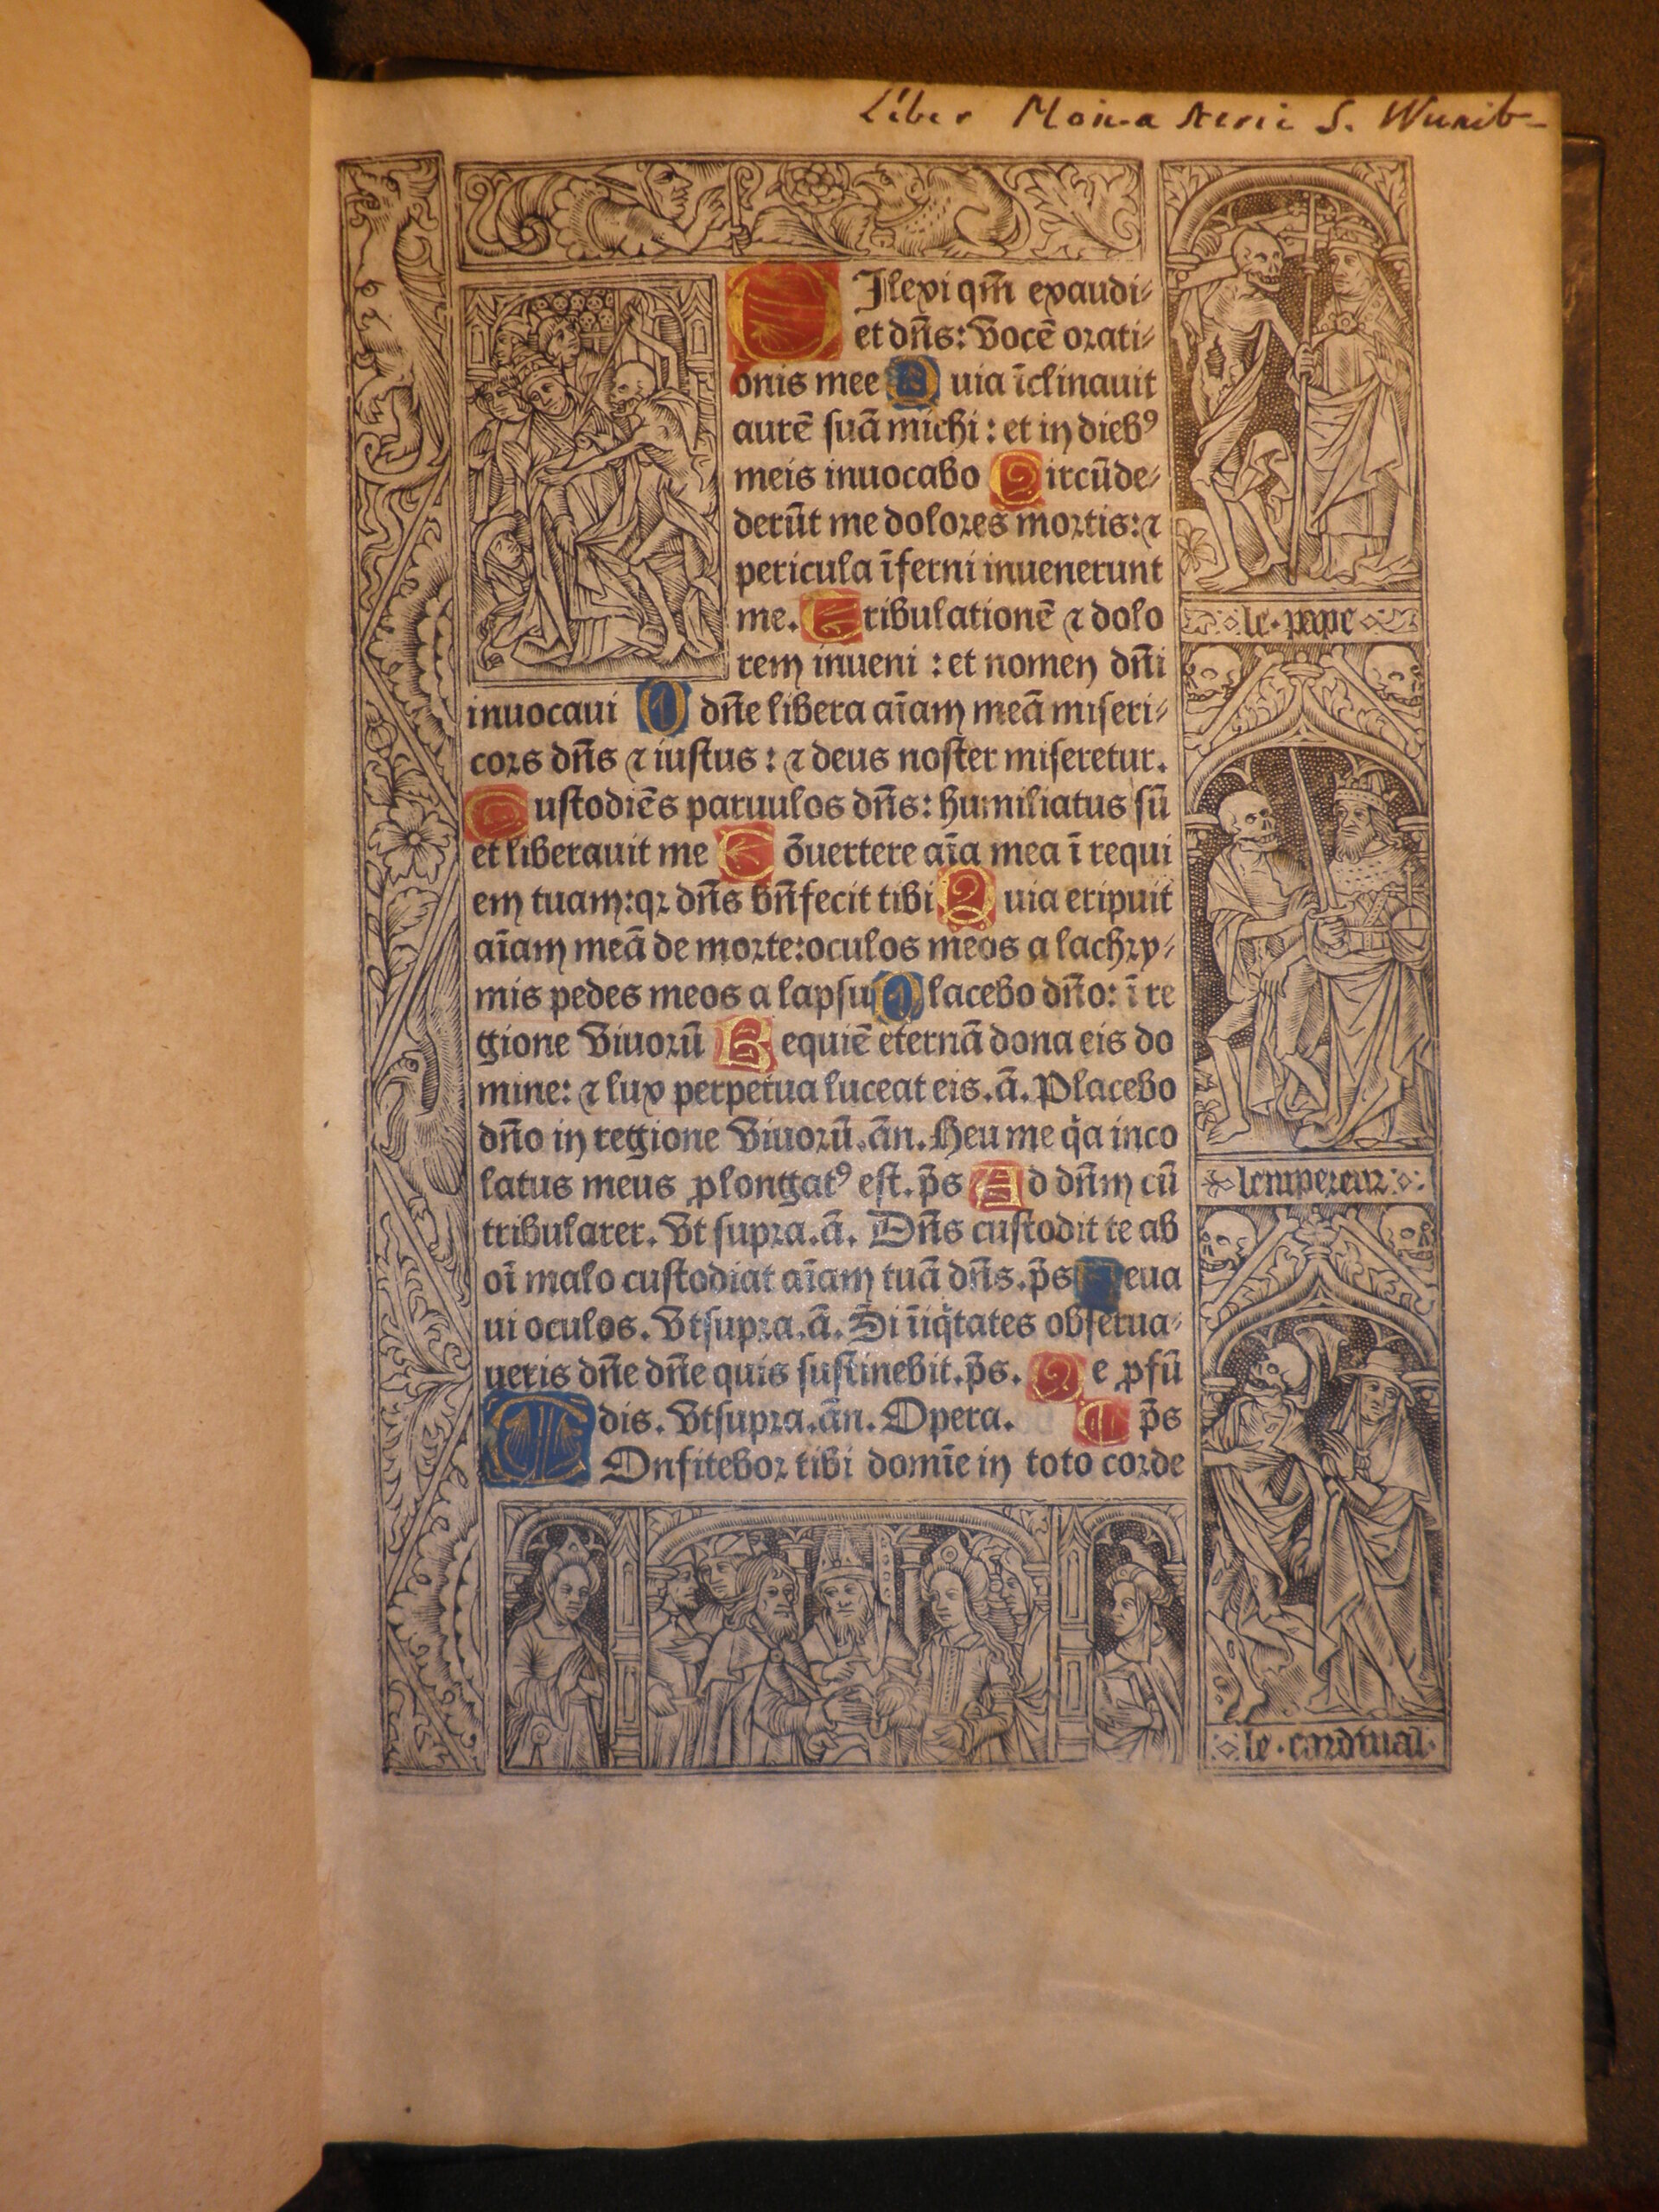 Liber Monasterii S. Wunib-
DIlexi qm̄ exaudi⸗
et dn̄s: vocē orati⸗
onis mee Quia īclinauit
aurē suā michi : et in diebꝰ
meis inuocabo Circūde⸗
derūt me dolores mortis: ⁊
pericula īferni inuenerunt
me. Tribulationē ⁊ dolo
rem inueni : et nomen dn̄i
inuocaui O dn̄e libera aīam meā miseri⸗
cors dn̄s ⁊ iustus : ⁊ deus noster miseretur.
Custodiēs paruulos dn̄s: humiliatus sū
et liberauit me Cōuertere aīa mea ī requi
em tuam: qꝛ dn̄s bn̄fecit tibi Quia eripuit
aīam meā de morte: oculos meos a lachry⸗
mis pedes meos a lapsu Placebo dn̄o: ī re
gione viuorū Requiē eternā dona eis do
mine: ⁊ lux perpetua luceat eis. ā. Placebo
dn̄o in regione viuorū. ān. Heu me qͣ inco
latus meus ꝓlongatꝰ est. p̄s Ad dn̄m cū
tribularer. Vt supra. ā. Dn̄s custodit te ab
oī malo custodiat aīam tuā dn̄s. p̄s Leua
ui oculos. Vt supra. ā. Si īiq̄tates obserua⸗
ueris dn̄e dn̄e quis sustinebit. p̄s. De ꝓfū
dis. Vt supra. ān. Opera. p̄s
COnfitebor tibi domīe in toto corde
le · pape
lempereur
le · cardinal